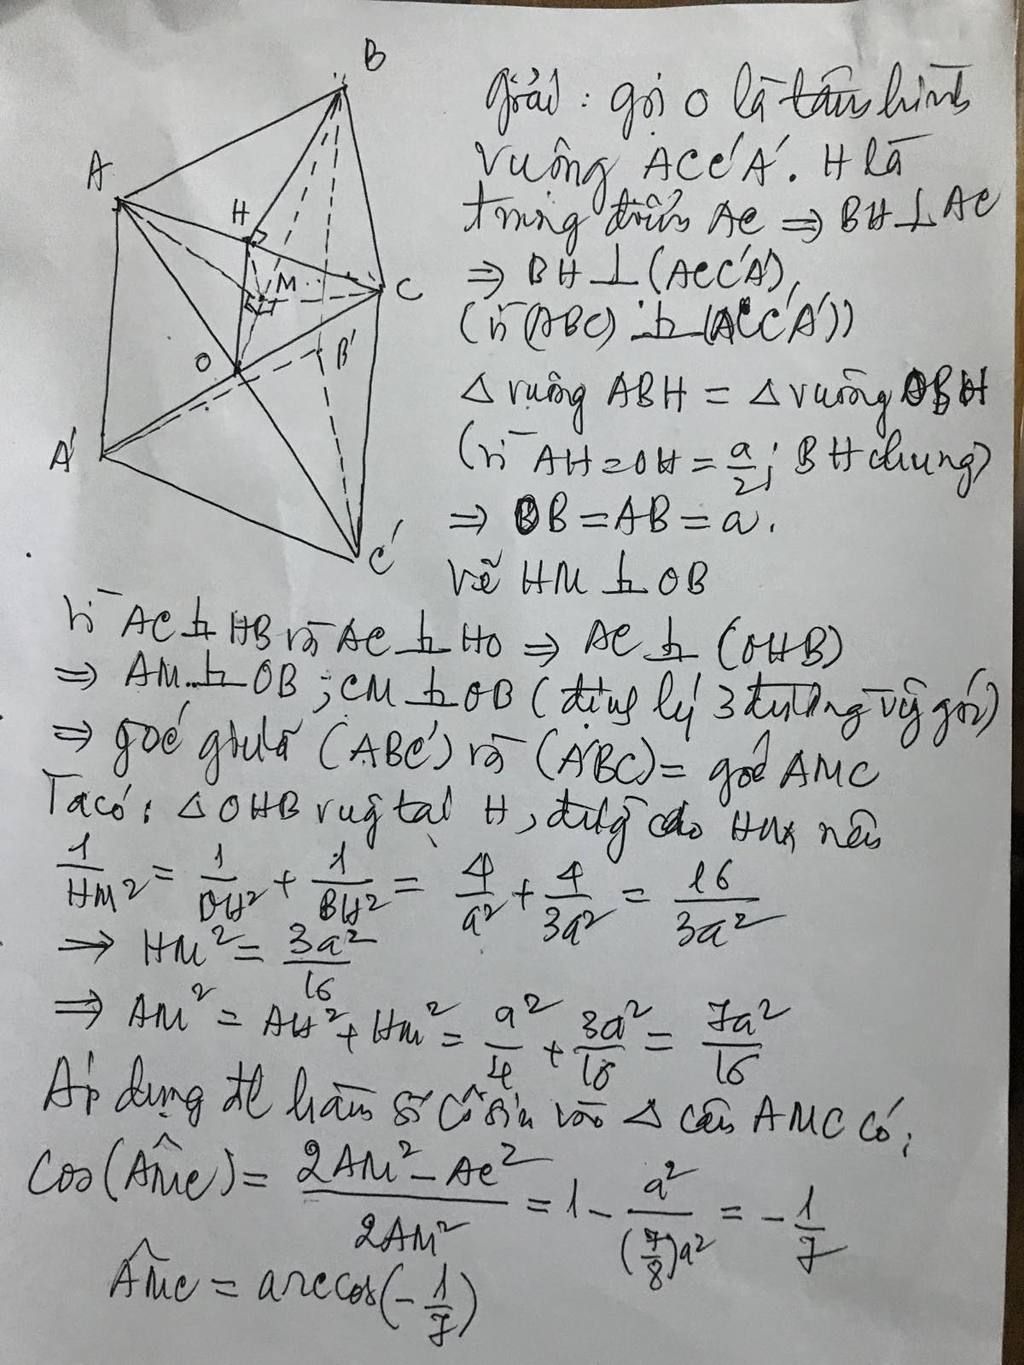 B
A
H
M
C
O
B'
A'
C'
Giải: gọi O là tâm hình
vuông ACC'A'. H là
trung điểm AC ⇒ BH ⊥ AC
⇒ BH ⊥ (ACC'A')
(vì (ABC) ⊥ (ACC'A'))
Δ vuông ABH = Δ vuông OBH
(vì AH = OH = a/2; BH chung)
⇒ OB = AB = a.
Vẽ HM ⊥ OB
Vì AC ⊥ HB và AC ⊥ HO ⇒ AC ⊥ (OHB)
⇒ AM ⊥ OB; CM ⊥ OB (định lý 3 đường vg góc)
⇒ góc giữa (ABC') và (A'BC) = góc AMC
Ta có: Δ OHB vug tại H, đg cao HM nên
1/HM² = 1/OH² + 1/BH² = 4/a² + 4/3a² = 16/3a²
⇒ HM² = 3a²/16
⇒ AM² = AH² + HM² = a²/4 + 3a²/16 = 7a²/16
Áp dụng đl hàm số côsin vào Δ cân AMC có:
Cos(AMC) = (2AM² - AC²)/2AM² = 1 - a²/(7/8)a² = -1/7
AMC = arccos(-1/7)